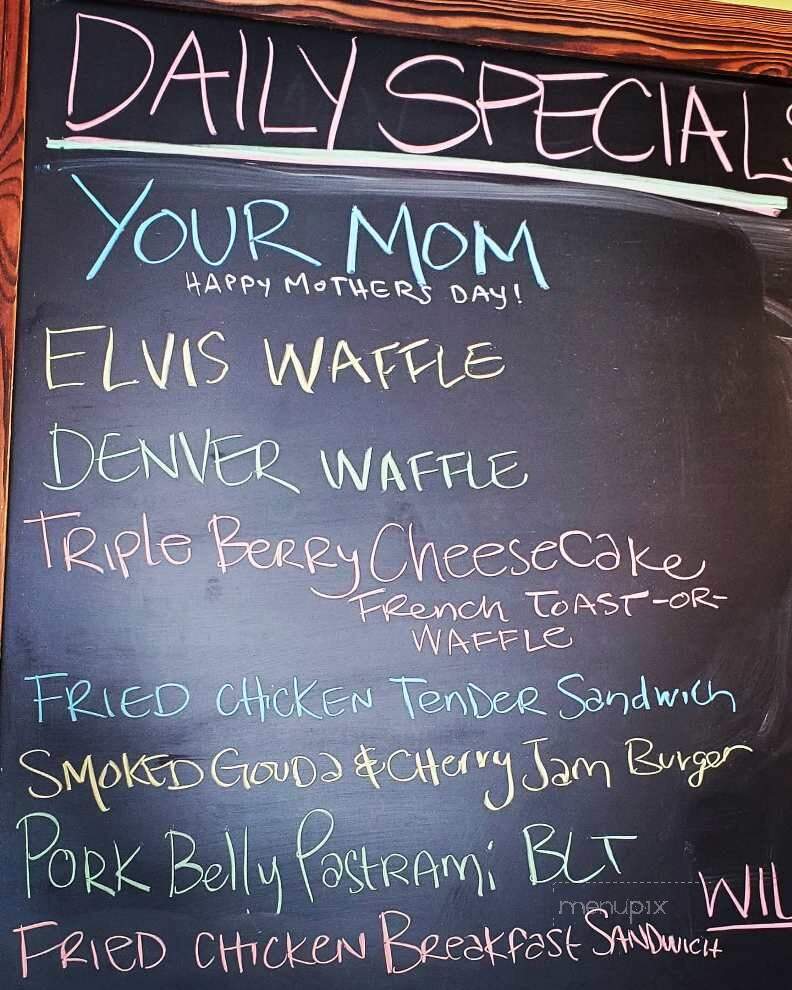 DAILY SPECIALS
YOUR MOM
HAPPY MOTHERS DAY!
ELVIS WAFFLE
DENVER WAFFLE
TRIPLE BERRY CHEESECAKE
FRENCH TOAST -OR-
WAFFLE
FRIED CHICKEN TENDER Sandwich
SMOKED GOUDa & CHerry Jam Burger
PORK Belly PaSTRAMi BLT
WIL
menupix
FRIED CHICKEN Breakfast SANDWICH